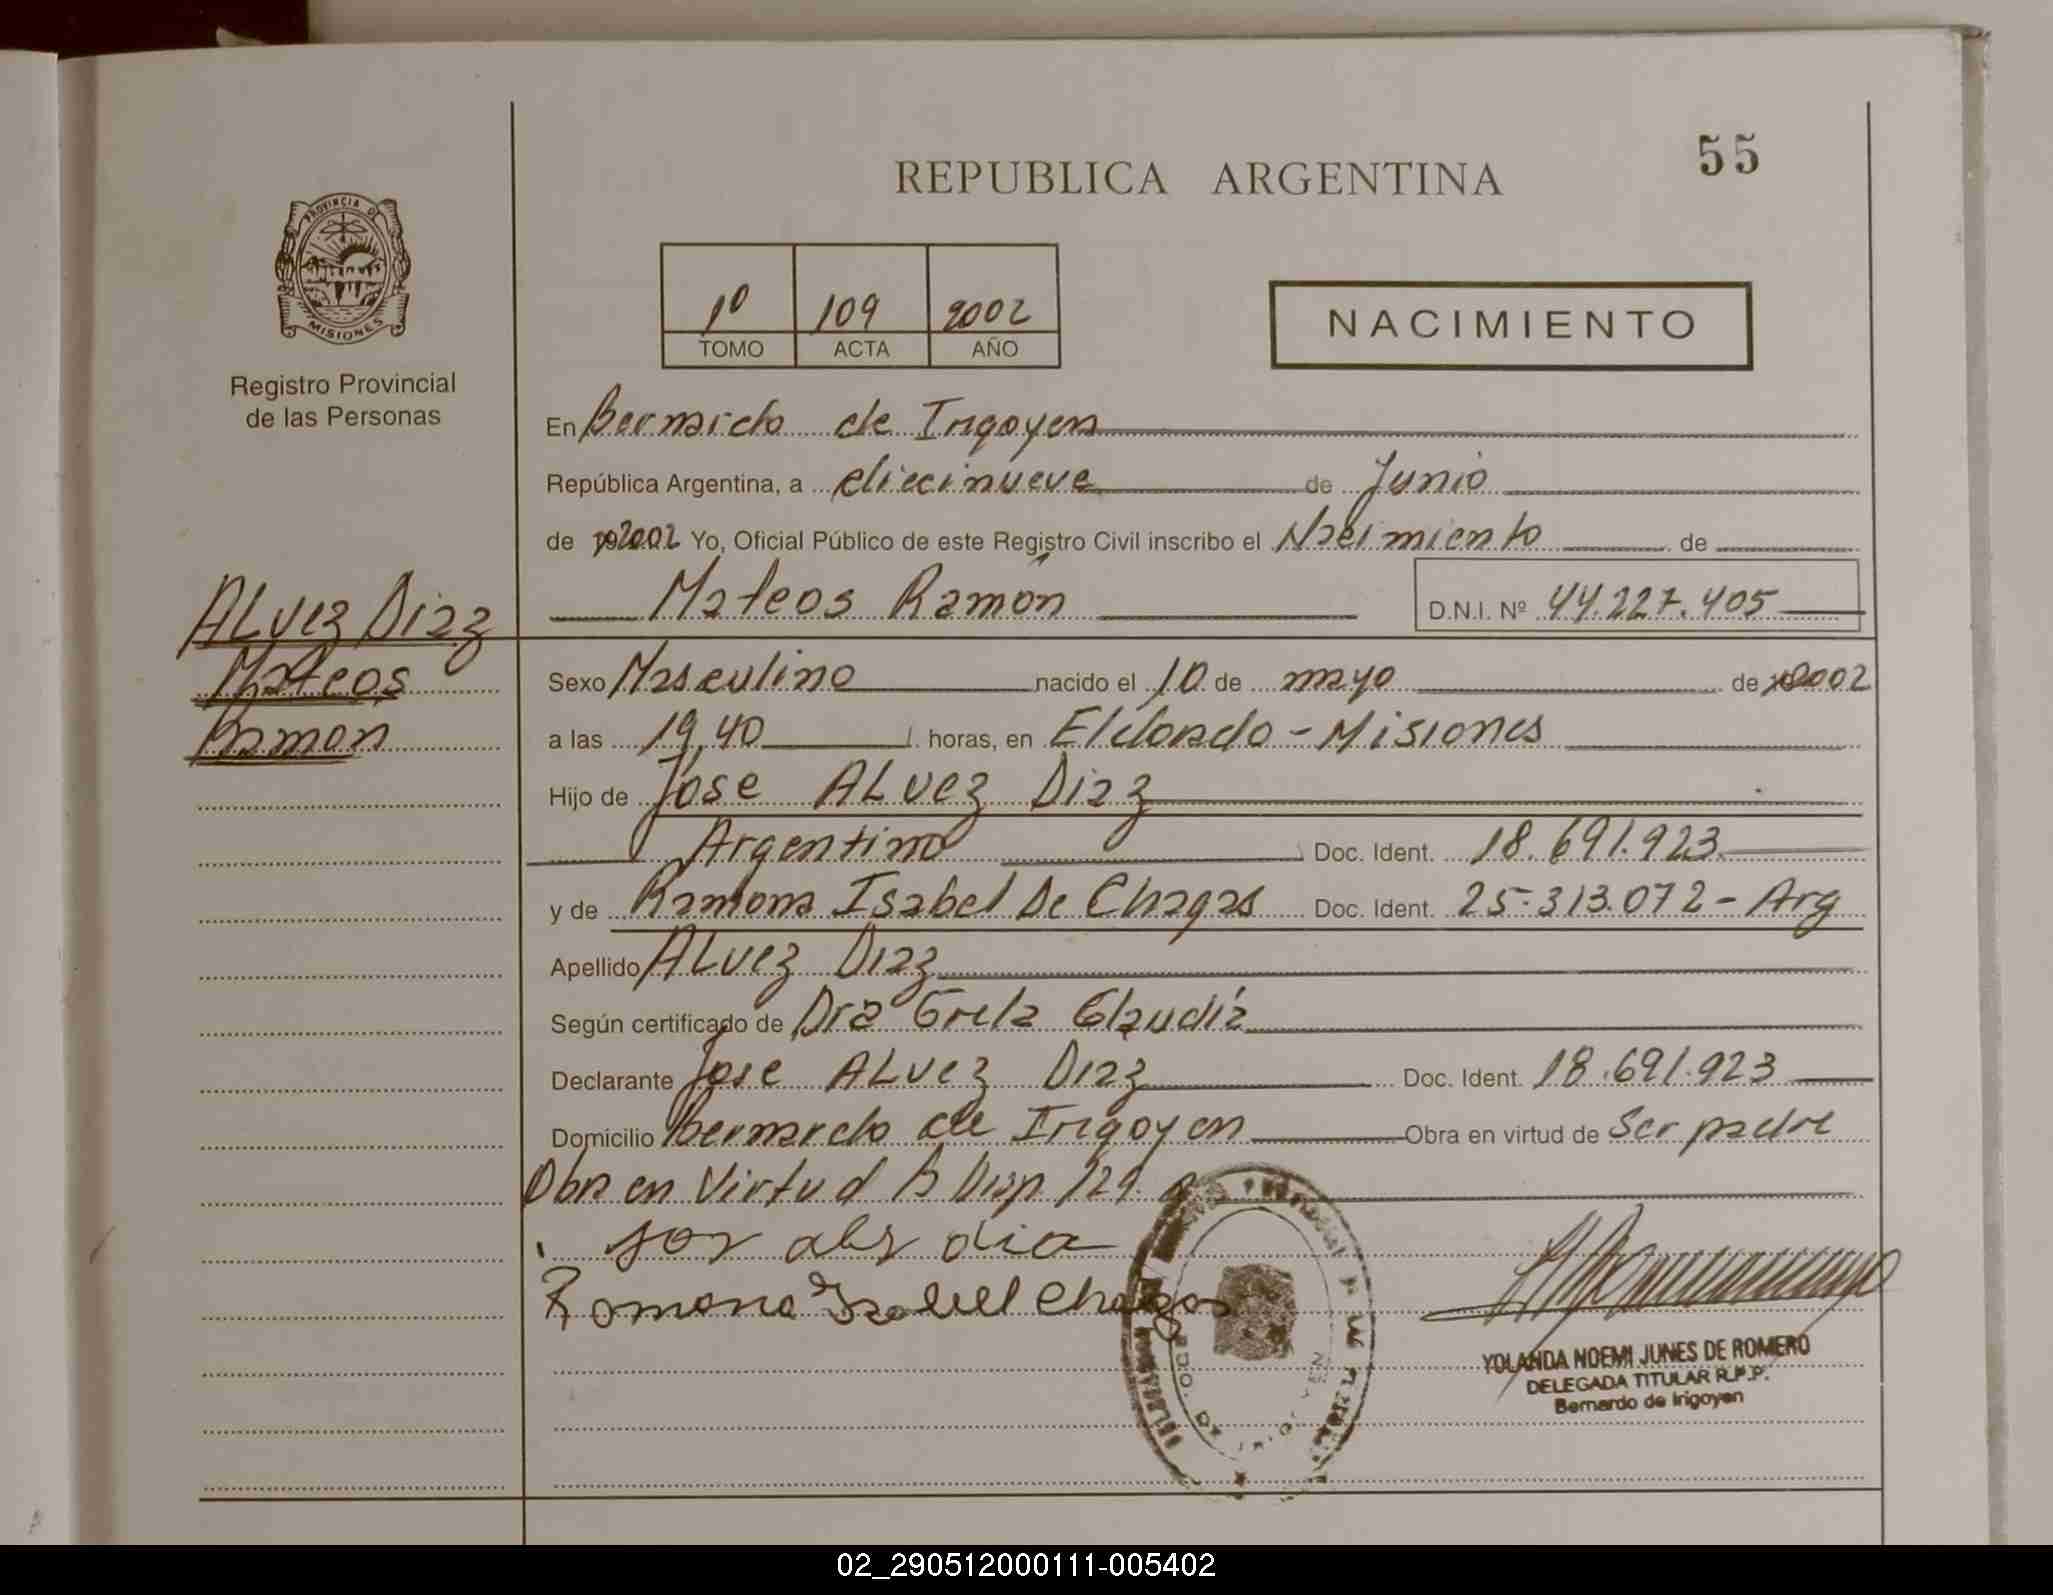 55
REPUBLICA ARGENTINA
PROVINCIA DE
MISIONES
Registro Provincial
de las Personas
1º 109 2002
TOMO ACTA AÑO
NACIMIENTO
En Bernardo de Irigoyen
República Argentina, a diecinueve de Junio
de 2002 Yo, Oficial Público de este Registro Civil inscribo el Nacimiento de
Mateos Ramón D.N.I. Nº 44.227.405
ALvez Diaz
Mateos
Ramon
Sexo Masculino nacido el 10 de mayo de 2002
a las 19,40 horas, en Eldorado - Misiones
Hijo de Jose ALvez Diaz
Argentino Doc. Ident. 18.691.923
y de Ramona Isabel De Chagas Doc. Ident. 25.313.072 - Arg
Apellido ALvez Diaz
Según certificado de Dra Claudia
Declarante Jose ALvez Diaz Doc. Ident. 18.691.923
Domicilio Bernardo de Irigoyen Obra en virtud de Ser padre
Obra en Virtud Disp 129
Ramona Isabel Chagas
YOLANDA NOEMI JUNES DE ROMERO
DELEGADA TITULAR R.P.P.
Bernardo de Irigoyen
02_290512000111-005402